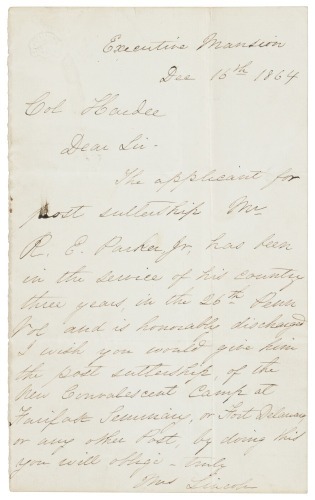 Executive Mansion
Dec 15th 1864
Col Hardee
Dear Sir -
The applicant for
post sutlership Mr
R. E. Parker Jr. has been
in the service of his country
three years, in the 26th Penn
Vol and is honorably discharged
I wish you would give him
the post sutlership, of the
New Convalescent Camp at
Fairfax Seminary, or Fort Delaware
or any other Post, by doing this
you will oblige - truly
Mrs Lincoln